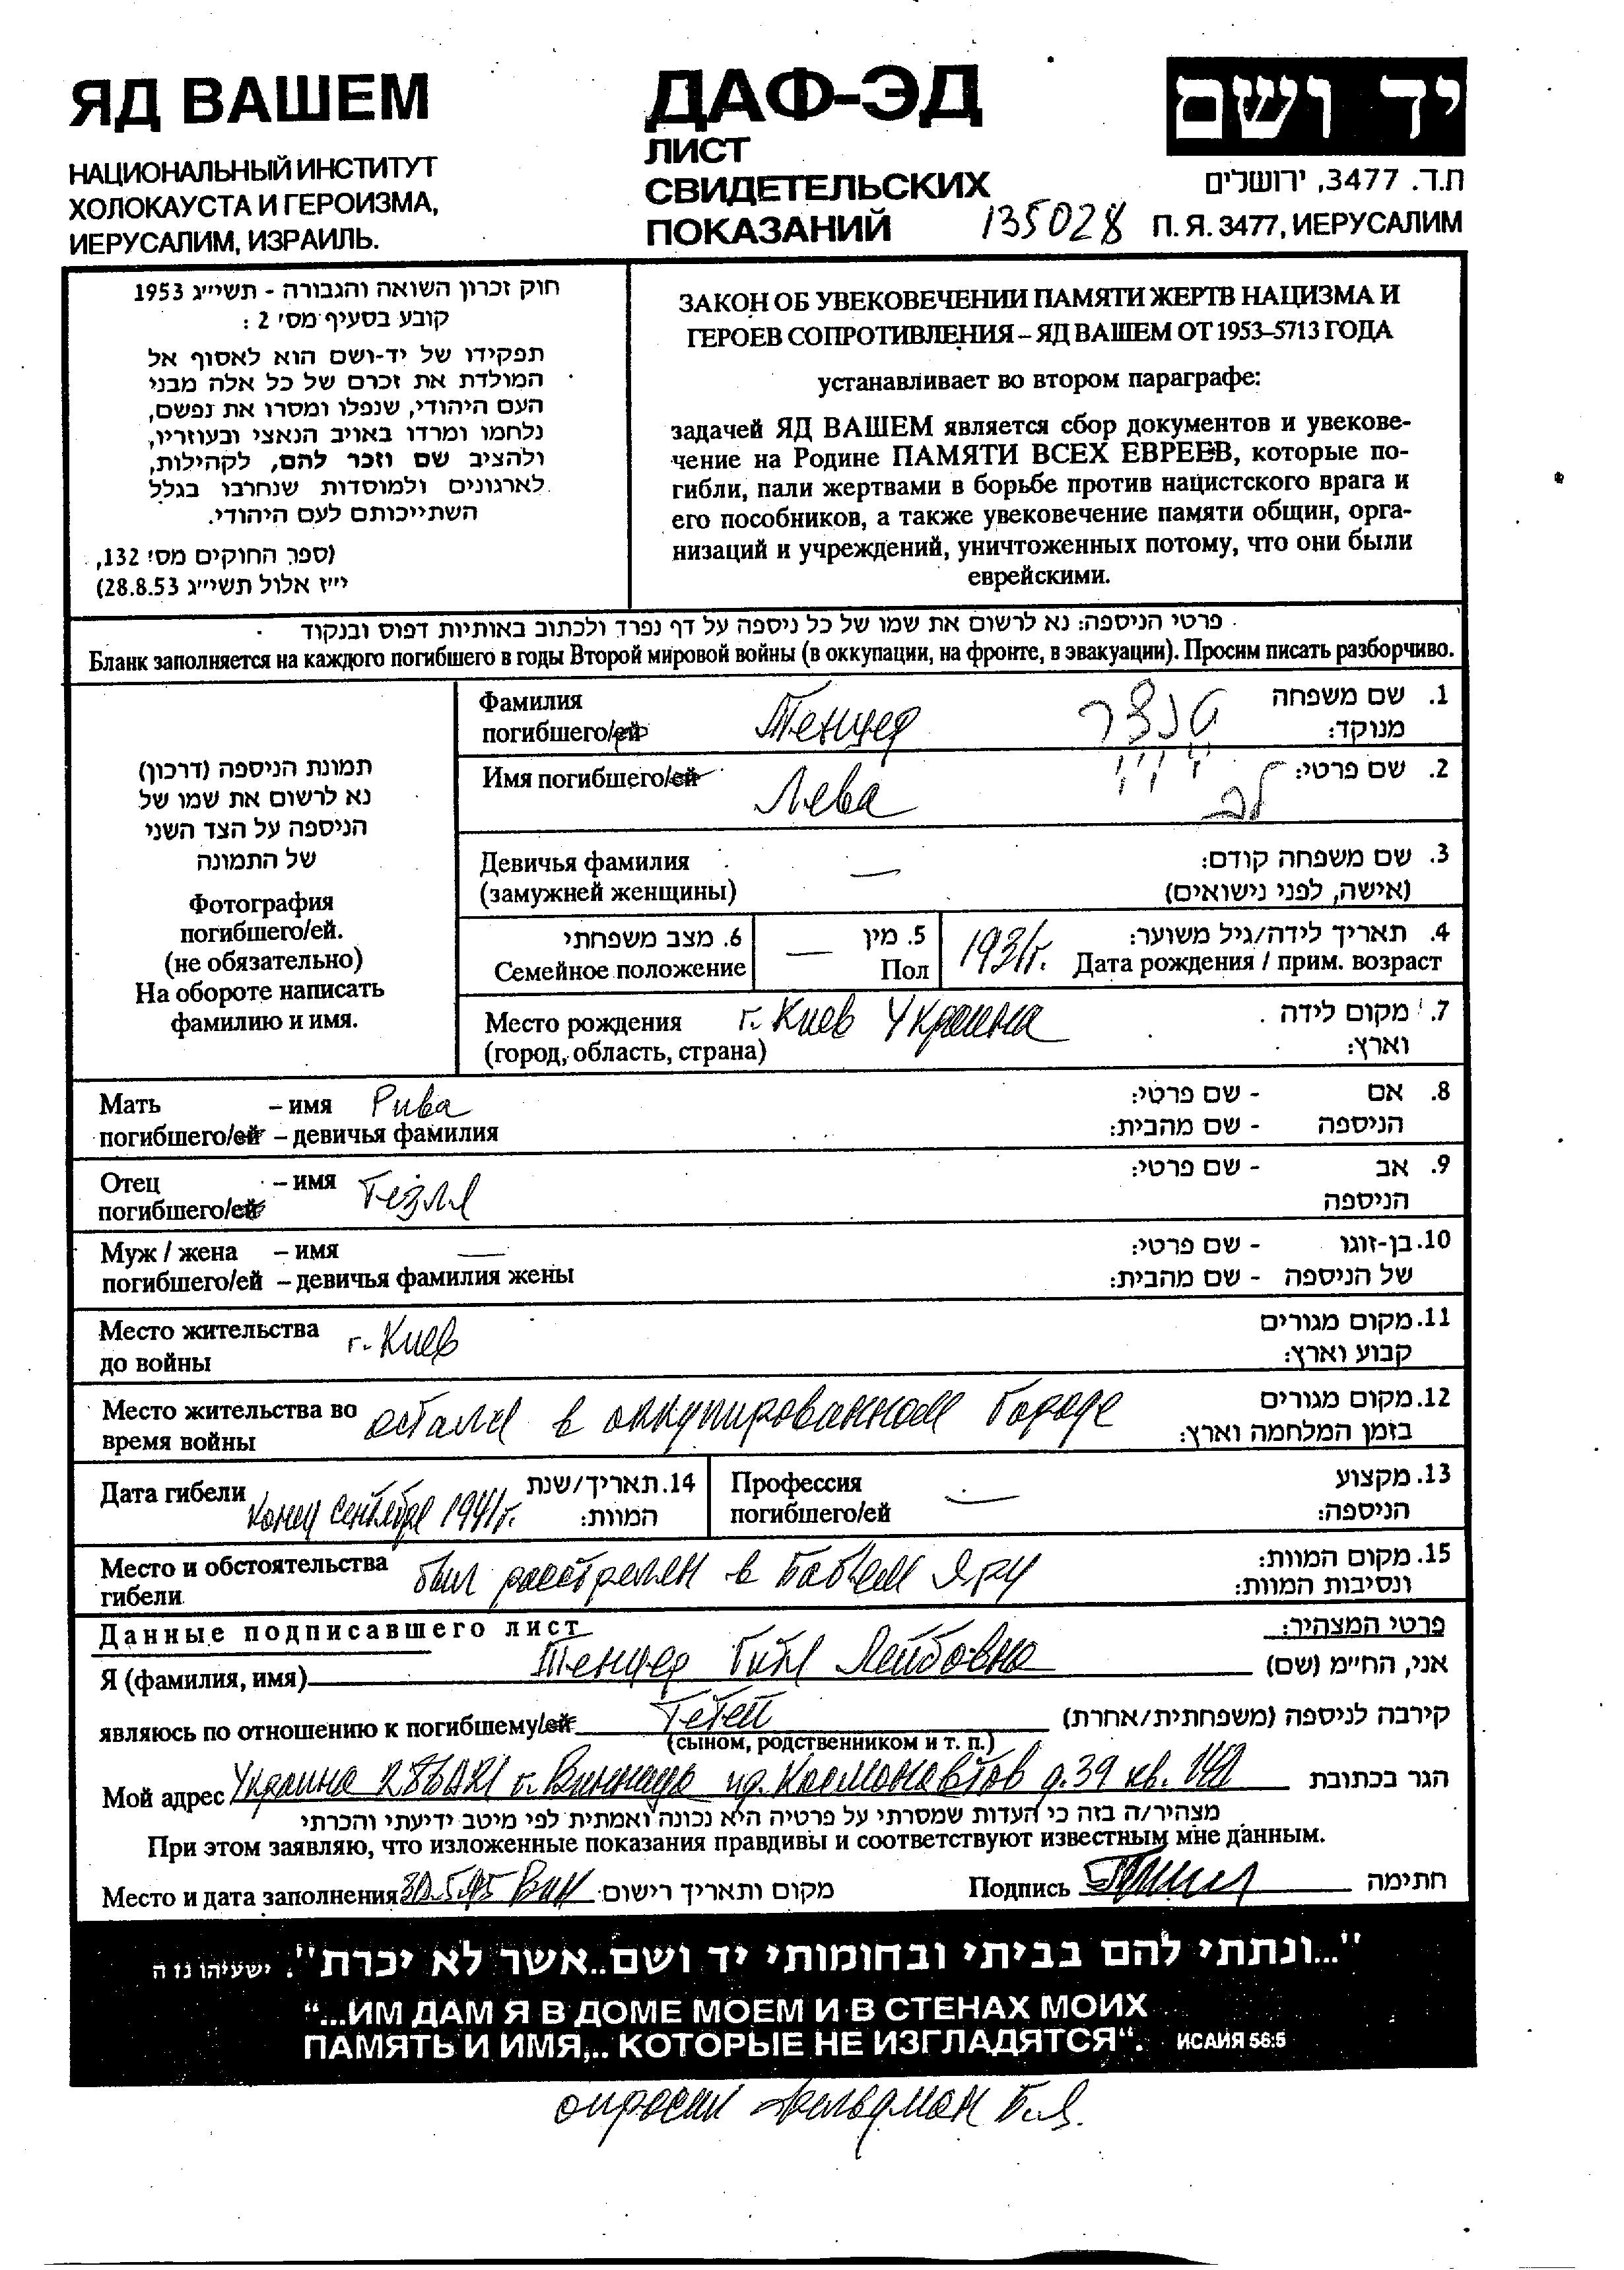 ЯД ВАШЕМ
НАЦИОНАЛЬНЫЙ ИНСТИТУТ
ХОЛОКАУСТА И ГЕРОИЗМА,
ИЕРУСАЛИМ, ИЗРАИЛЬ.
ДАФ-ЭД
ЛИСТ
СВИДЕТЕЛЬСКИХ
ПОКАЗАНИЙ 135028
יד ושם
ת.ד. 3477, ירושלים
П. Я. 3477, ИЕРУСАЛИМ
חוק זכרון השואה והגבורה - תשי״ג 1953
קובע בסעיף מס׳ 2 :
תפקידו של יד-ושם הוא לאסוף אל
המולדת את זכרם של כל אלה מבני
העם היהודי, שנפלו ומסרו את נפשם,
נלחמו ומרדו באויב הנאצי ובעוזריו,
ולהציב שם וזכר להם, לקהילות,
לארגונים ולמוסדות שנחרבו בגלל
השתייכותם לעם היהודי.
(ספר החוקים מס׳ 132,
י״ז אלול תשי״ג 28.8.53)
ЗАКОН ОБ УВЕКОВЕЧЕНИИ ПАМЯТИ ЖЕРТВ НАЦИЗМА И
ГЕРОЕВ СОПРОТИВЛЕНИЯ – ЯД ВАШЕМ ОТ 1953–5713 ГОДА
устанавливает во втором параграфе:
задачей ЯД ВАШЕМ является сбор документов и увекове-
чение на Родине ПАМЯТИ ВСЕХ ЕВРЕЕВ, которые по-
гибли, пали жертвами в борьбе против нацистского врага и
его пособников, а также увековечение памяти общин, орга-
низаций и учреждений, уничтоженных потому, что они были
еврейскими.
פרטי הניספה: נא לרשום את שמו של כל ניספה על דף נפרד ולכתוב באותיות דפוס ובנקוד
Бланк заполняется на каждого погибшего в годы Второй мировой войны (в оккупации, на фронте, в эвакуации). Просим писать разборчиво.
תמונת הניספה (דרכון)
נא לרשום את שמו של
הניספה על הצד השני
של התמונה
Фотография
погибшего/ей.
(не обязательно)
На обороте написать
фамилию и имя.
Фамилия
погибшего/ей Тенцер טנצר
1. שם משפחה
מנוקד:
Имя погибшего/ей Лева לב
2. שם פרטי:
Девичья фамилия —
(замужней женщины)
3. שם משפחה קודם:
(אישה, לפני נישואים)
6. מצב משפחתי
Семейное положение
5. מין —
Пол
4. תאריך לידה/גיל משוער:
1931г. Дата рождения / прим. возраст
Место рождения г. Киев Украина
(город, область, страна)
7. מקום לידה
וארץ:
Мать – имя Рива
погибшего/ей – девичья фамилия
8. אם - שם פרטי:
הניספה - שם מהבית:
Отец – имя Гейзля
погибшего/ей
9. אב - שם פרטי:
הניספה
Муж / жена – имя —
погибшего/ей – девичья фамилия жены
10. בן-זוגו - שם פרטי:
של הניספה - שם מהבית:
Место жительства г. Киев
до войны
11. מקום מגורים
קבוע וארץ:
Место жительства во остался в оккупированном городе
время войны
12. מקום מגורים
בזמן המלחמה וארץ:
Дата гибели конец сентября 1941г.
14. תאריך/שנת
המוות:
Профессия —
погибшего/ей
13. מקצוע
הניספה:
Место и обстоятельства был расстрелян в Бабьем Яру
гибели
15. מקום המוות:
ונסיבות המוות:
Данные подписавшего лист
פרטי המצהיר:
Я (фамилия, имя) Тенцер Гитя Лейбовна אני, החיימ (שם)
являюсь по отношению к погибшему/ей Тётей קירבה לניספה (משפחתית/אחרת)
(сыном, родственником и т. п.)
Мой адрес Украина г. Винница пр. Космонавтов д. 39 кв. הגר בכתובת
מצהיר/ה בזה כי העדות שמסרתי על פרטיה היא נכונה ואמתית לפי מיטב ידיעתי והכרתי
При этом заявляю, что изложенные показания правдивы и соответствуют известным мне данным.
Место и дата заполнения 30.5.95 Вин מקום ותאריך רישום Подпись חתימה
"...ונתתי להם בביתי ובחומותי יד ושם..אשר לא יכרת". ישעיהו נו ה
“...ИМ ДАМ Я В ДОМЕ МОЕМ И В СТЕНАХ МОИХ
ПАМЯТЬ И ИМЯ,.. КОТОРЫЕ НЕ ИЗГЛАДЯТСЯ“. ИСАИЯ 56:5
опросил Фельдман Б.Я.